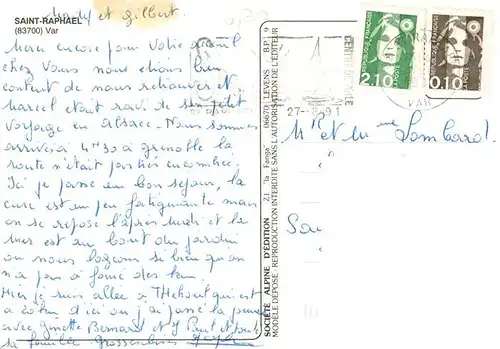 Maily et gilbert
SAINT-RAPHAEL
(83700) Var
Merci encore pour votre accueil
chez vous nous étions bien
content de nous retrouver et
Marcel était ravi de son petit
voyage en alsace. Nous sommes
arrivés à 4H30 à grenoble la
route n'était pas très encombrée.
Ici je passe un bon séjour, la
cure est un peu fatiguante mais
on se repose l'après midi et la
mer est au bout du jardin
ou nous logeons si bien qu'on
n'a pas à faire des km
Hier je suis allée à Théhoul qui est
à 20km d'ici ou j'ai passé la journée
avec ginette Bernard et J Paul et toute
la famille Grosses bises
SOCIÉTÉ ALPINE D'ÉDITION 2.I "la Fonga" 06670 LEVENS B.P. 9
MODÈLE DÉPOSÉ REPRODUCTION INTERDITE SANS L'AUTORISATION DE L'ÉDITEUR
RÉPUBLIQUE FRANÇAISE
2,10
LA POSTE
RÉPUBLIQUE FRANÇAISE
0,10
LA POSTE
VAR
27-8-91
Mr et Mme Lombard